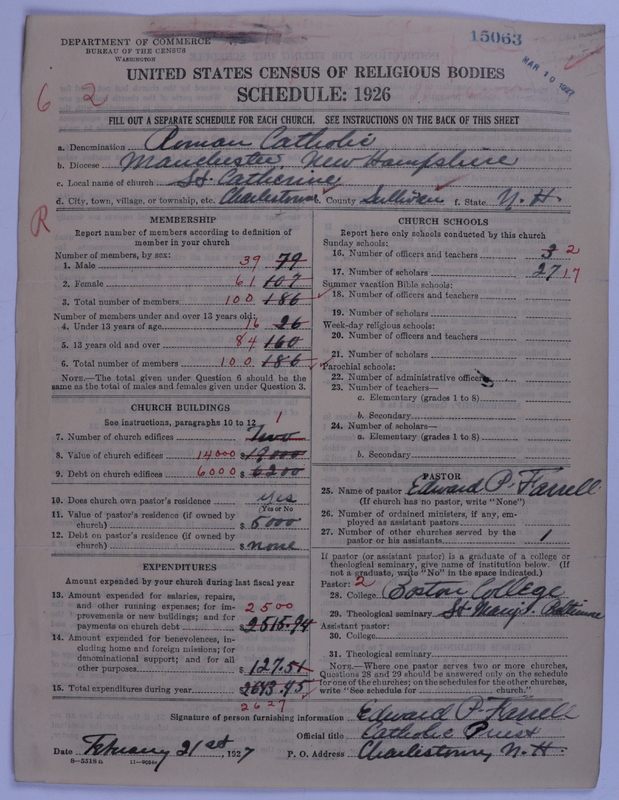 DEPARTMENT OF COMMERCE
BUREAU OF THE CENSUS
WASHINGTON
15063
MAR 10 1927
UNITED STATES CENSUS OF RELIGIOUS BODIES
SCHEDULE: 1926
6 2
FILL OUT A SEPARATE SCHEDULE FOR EACH CHURCH. SEE INSTRUCTIONS ON THE BACK OF THIS SHEET
a. Denomination Roman Catholic
b. Diocese Manchester, New Hampshire
c. Local name of church St Catherine
d. City, town, village, or township, etc. Charlestown e. County Sullivan f. State N. H.
R
MEMBERSHIP
Report number of members according to definition of
member in your church
Number of members, by sex:
1. Male 39 79
2. Female 61 107
3. Total number of members 100 186
Number of members under and over 13 years old:
4. Under 13 years of age 16 26
5. 13 years old and over 84 160
6. Total number of members 100 186
NOTE.—The total given under Question 6 should be the
same as the total of males and females given under Question 3.
CHURCH BUILDINGS
See instructions, paragraphs 10 to 12
7. Number of church edifices 1 Two
8. Value of church edifices 14000 $ 19000
9. Debt on church edifices 6000 $ 6200
10. Does church own pastor's residence Yes
(Yes or No)
11. Value of pastor's residence (if owned by
church) $ 5000
12. Debt on pastor's residence (if owned by
church) $ none
EXPENDITURES
Amount expended by your church during last fiscal year
13. Amount expended for salaries, repairs,
and other running expenses; for im-
provements or new buildings; and for
payments on church debt 2500 $ 2515.94
14. Amount expended for benevolences, in-
cluding home and foreign missions; for
denominational support; and for all
other purposes $ 127.51
15. Total expenditures during year $ 2643.45
2627
CHURCH SCHOOLS
Report here only schools conducted by this church
Sunday schools:
16. Number of officers and teachers 3 2
17. Number of scholars 27 17
Summer vacation Bible schools:
18. Number of officers and teachers
19. Number of scholars
Week-day religious schools:
20. Number of officers and teachers
21. Number of scholars
Parochial schools:
22. Number of administrative officers
23. Number of teachers—
a. Elementary (grades 1 to 8)
b. Secondary
24. Number of scholars—
a. Elementary (grades 1 to 8)
b. Secondary
PASTOR
25. Name of pastor Edward P. Farrell
(If church has no pastor, write "None")
26. Number of ordained ministers, if any, em-
ployed as assistant pastors
27. Number of other churches served by the
pastor or his assistants 1
If pastor (or assistant pastor) is a graduate of a college or
theological seminary, give name of institution below. (If
not a graduate, write "No" in the space indicated.)
Pastor: 2
28. College Boston College
29. Theological seminary St Mary's. Baltimore
Assistant pastor:
30. College
31. Theological seminary
NOTE.—Where one pastor serves two or more churches,
Questions 28 and 29 should be answered only on the schedule
for one of the churches; on the schedules for the other churches,
write "See schedule for church."
Signature of person furnishing information Edward P. Farrell
Official title Catholic Priest
Date February 21st, 1927 P. O. Address Charlestown, N. H.